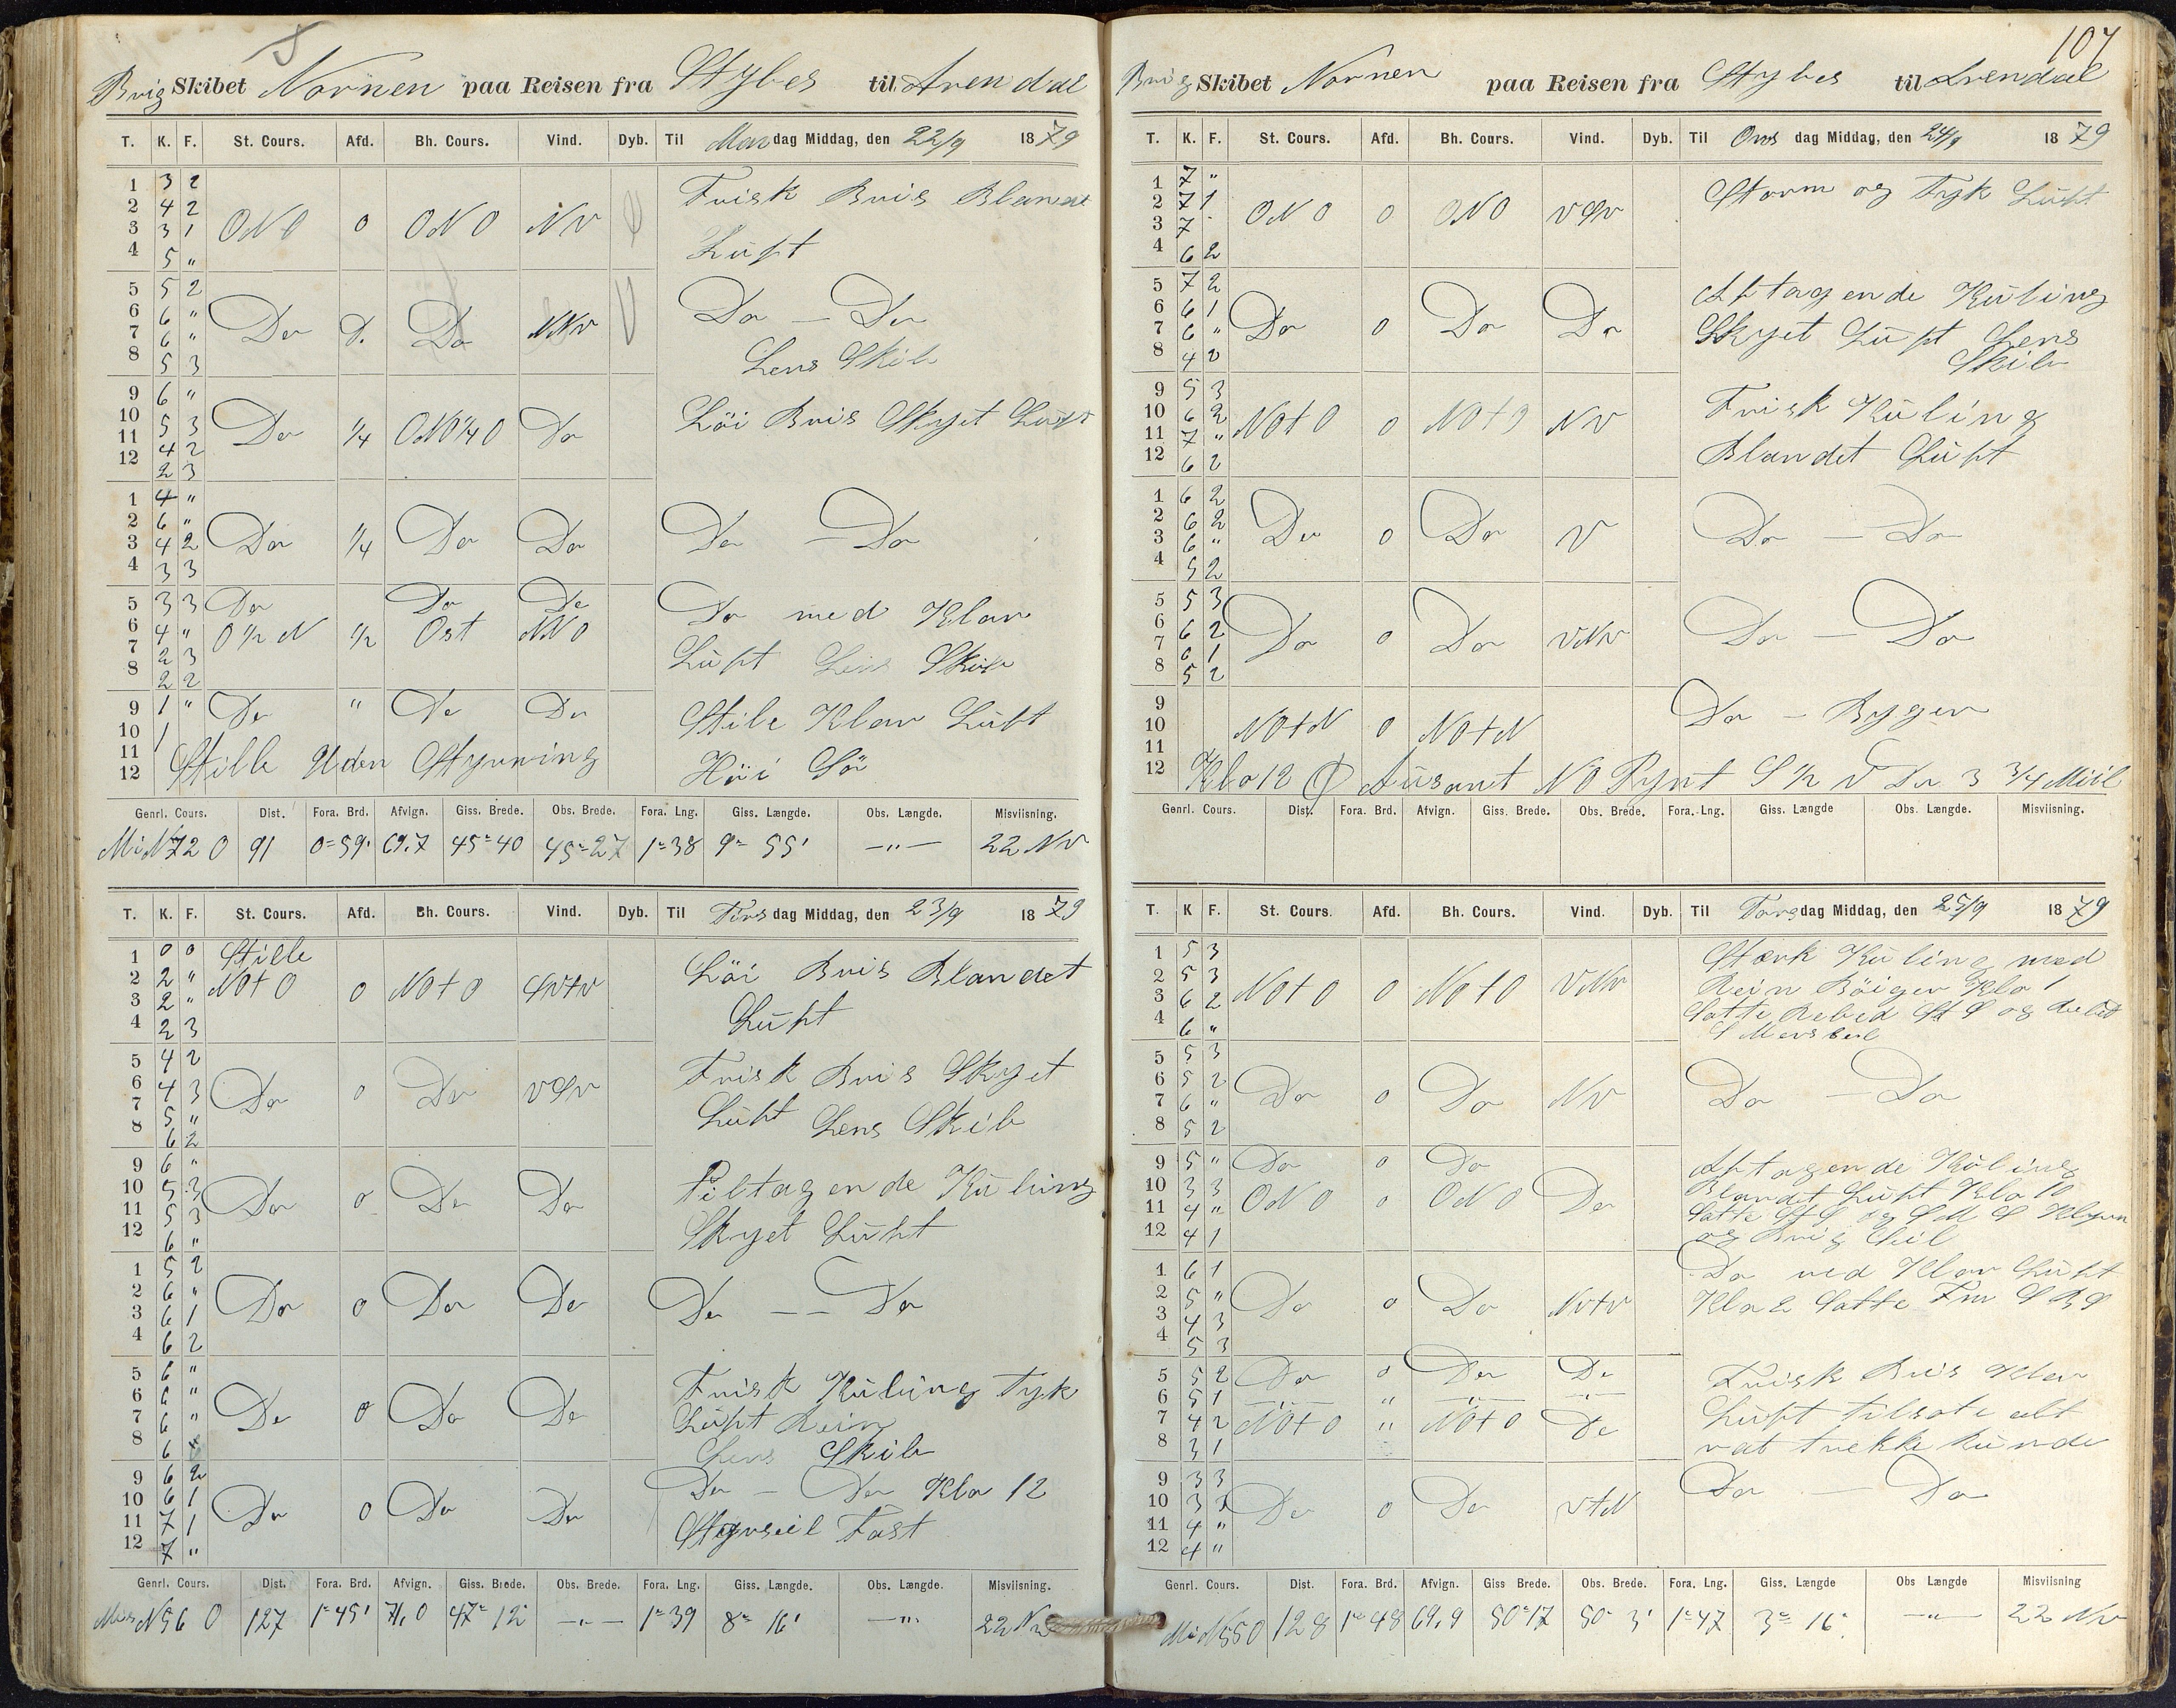 Brig Skibet Nornen paa Reisen fra Stybes til Arendal
T. K. F. St. Cours. Afd. Bh. Cours. Vind. Dyb. Til Mandag Middag, den 22/9 1879
1 3 2
2 4 2 ONO 0 ONO NV Frisk Bris Blandet
3 3 1
4 5 " Luft
5 5 2
6 6 " Do Do NNV Do — Do
7 6 "
8 5 3 Lens Skib
9 6 "
10 5 3 Do 1/4 ONO 1/4 O Do Löi Bris Skyet Luft
11 4 2
12 2 3
1 4 "
2 6 "
3 4 2 Do 1/4 Do Do Do — Do
4 3 3
5 3 3 Do Do Do Do med Klar
6 4 " O 1/2 N 1/2 Ost NNO
7 2 3 Luft Lens Skib
8 2 2
9 1 " Do " Do Do Stile Klar Luft
10 1
11 Stille Uden Styrning Höi Sö
12
Genrl. Cours. Dist. Fora. Brd. Afvign. Giss. Brede. Obs. Brede. Fora. Lng. Giss. Længde. Obs. Længde. Misviisning.
N 72 O 91 0=59' 69.7 45=40 45=27 1=38 9= 55' —"— 22 NV
T. K. F. St. Cours. Afd. Bh. Cours. Vind. Dyb. Til Tirsdag Middag, den 23/9 1879
1 0 0 Stille
2 2 " NOtO 0 NOtO SVtV Löi Bris Blandet
3 2 "
4 2 3 Luft
5 4 2
6 4 3 Do 0 Do VSV Frisk Bris Skyet
7 5 "
8 6 2 Luft Lens Skib
9 6 "
10 5 3 Do 0 Do Do Tiltagende Kuling
11 5 3
12 6 " Skyet Luft
1 5 2
2 6 "
3 6 1 Do 0 Do Do Do — — Do
4 6 2
5 6 " Frisk Kuling Tyk
6 6 " Do 0 Do Do
7 6 " Luft Rein
8 6 Lens Skib
9 6 2 Do — Do Klo 12
10 6 1 Do 0 Do Do
11 7 1 Fast
12 7 "
Genrl. Cours. Dist. Fora. Brd. Afvign. Giss. Brede. Obs. Brede. Fora. Lng. Giss. Længde. Obs. Længde. Misviisning.
N 56 O 127 1=45' 71.0 47= 12 —"— 1=39 8= 16' —"— 22 NV
107
Brig Skibet Nornen paa Reisen fra Stybes til Arendal
T. K. F. St. Cours. Afd. Bh. Cours. Vind. Dyb. Til Onsdag Middag, den 24/9 1879
1 7 "
2 7 1 ONO 0 ONO VSV Storm og Tyk Luft
3 7
4 6 2
5 7 2 Aftagende Kuling
6 6 1 Do 0 Do Do
7 6 " Skyet Luft Lens
8 4 2 Skib
9 5 3
10 6 2 NOtO 0 NOtO NV Frisk Kuling
11 7 "
12 6 2 Blandet Luft
1 6 2
2 6 2 Do 0 Do V Do — Do
3 6 "
4 5 2
5 5 3
6 6 2 Do 0 Do VNV Do — Do
7 6 1
8 5 2
9
10 NOtN 0 NOtN Do — Byger
11
12 Klo 12 NO Pynt S 1/2 V 3 3/4 Miil
Genrl. Cours. Dist. Fora. Brd. Afvign. Giss. Brede. Obs. Brede. Fora. Lng. Giss. Længde Obs. Længde. Misviisning.
T. K F. St. Cours. Afd. Bh. Cours. Vind. Dyb. Til Torsdag Middag, den 25/9 1879
1 5 3 Stærk Kuling med
2 5 3 NOtO 0 NOtO VNV Rein Böiger Klo 1
3 6 2 Satte Rebed St S og
4 6 " S Mersseil
5 5 3
6 5 2 Do 0 Do NV Do — Do
7 6 "
8 5 2
9 5 " Do 0 Do Aftagende Kuling
10 3 3 ONO 0 ONO Do Blandet Luft Klo 10
11 4 " Satte St S og S M S Klyver
12 4 1 og Brig Seil
1 6 1 Do ved Klar Luft
2 5 " Do 0 Do NVtV Klo 2 Satte
3 4 3
4 5 3
5 5 2 Do 0 Do Do Frisk Bris Klar
6 5 1 —"— " —"— —"—
7 4 2 NOtO " NOtO Do Luft tilsate alt
8 3 1 vat trekke kunde
9 3 3 Do — Do
10 3 Do 0 Do VtN
11 4 "
12 4 "
Genrl. Cours. Dist. Fora. Brd. Afvign. Giss Brede. Obs. Brede. Fora. Lng. Giss. Længde Obs Længde Misviisning
128 1=48 69.9 50=17 50= 3' 1=47 3= 16' —"— 22 NV